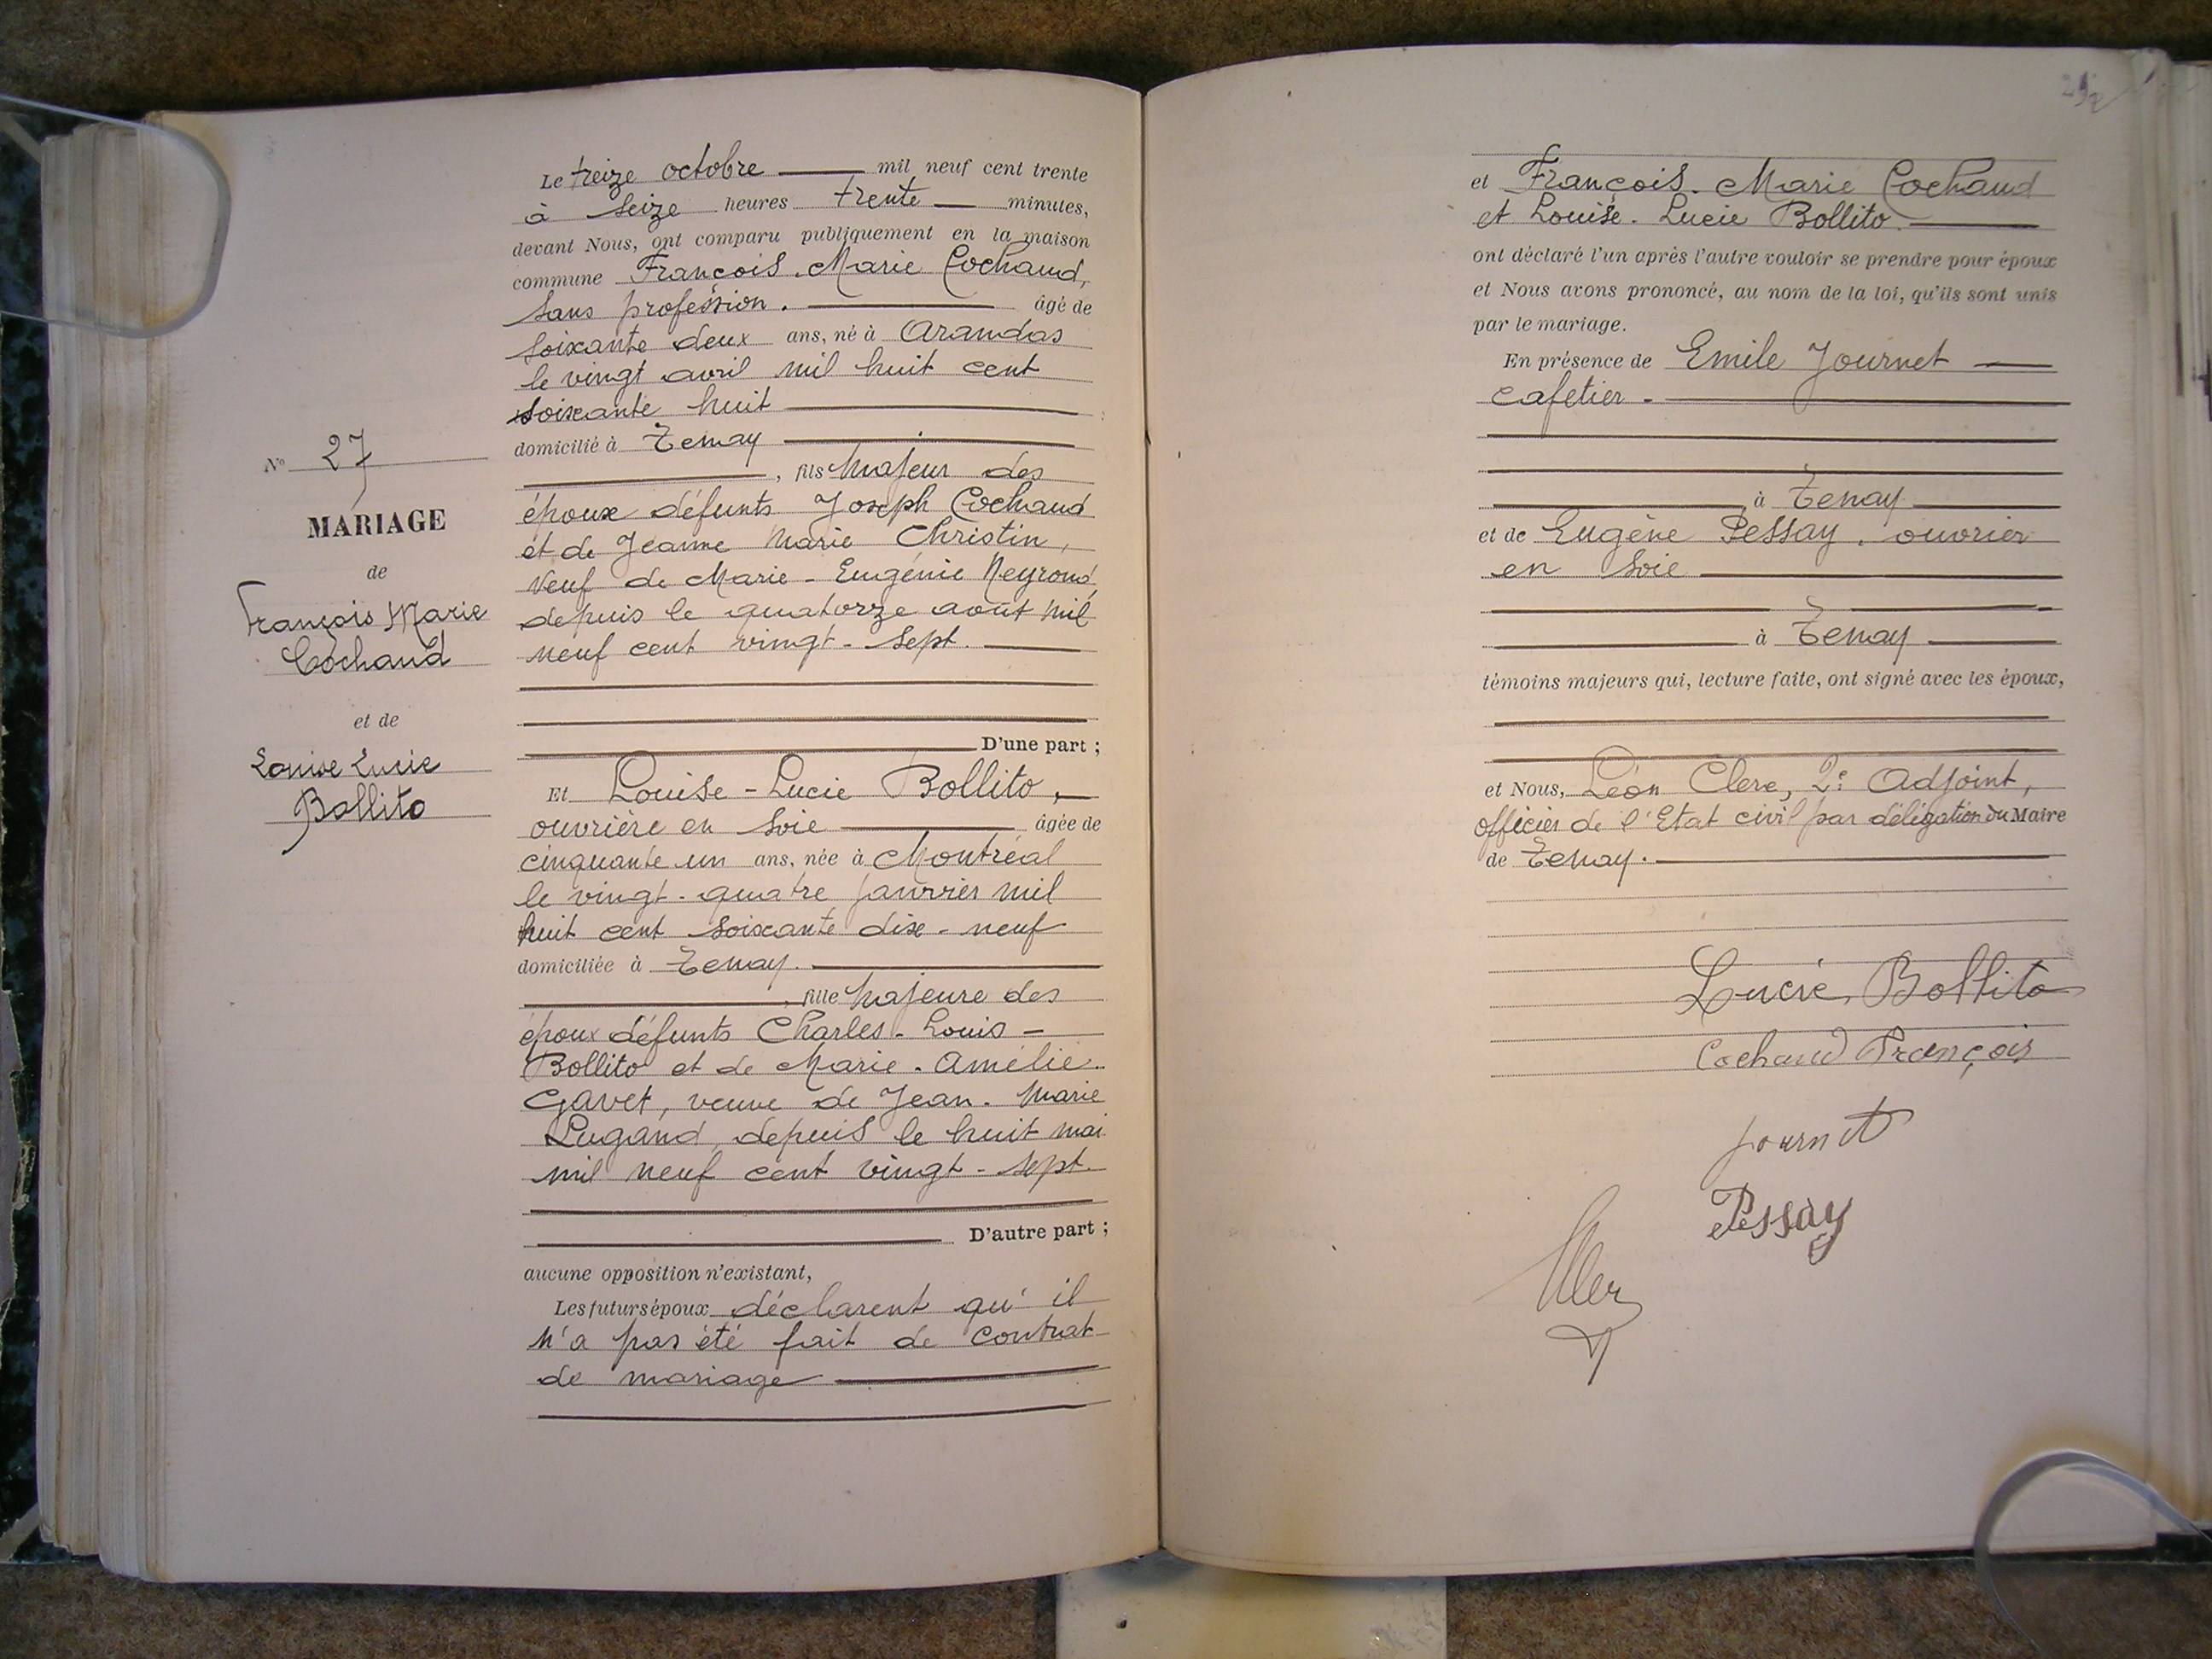 N° 27
MARIAGE
de
François Marie
Cochaud
et de
Louise Lucie
Bollito
Le treize octobre mil neuf cent trente
à seize heures trente minutes,
devant Nous, ont comparu publiquement en la maison
commune François-Marie Cochaud,
sans profession. âgé de
soixante deux ans, né à Arandas
le vingt avril mil huit cent
soixante huit
domicilié à Tenay
, fils majeur des
époux défunts Joseph Cochaud
et de Jeanne Marie Christin,
veuf de Marie-Eugénie Neyroud,
depuis le quatorze août mil
neuf cent vingt-sept.
D'une part ;
Et Louise-Lucie Bollito,
ouvrière en soie âgée de
cinquante un ans, née à Montréal
le vingt-quatre janvier mil
huit cent soixante dix-neuf
domiciliée à Tenay.
, fille majeure des
époux défunts Charles-Louis-
Bollito et de Marie-Amélie
Gavet, veuve de Jean-Marie
Lugand, depuis le huit mai
mil neuf cent vingt-sept.
D'autre part ;
aucune opposition n'existant,
Les futurs époux déclarent qu'il
n'a pas été fait de contrat
de mariage
et François-Marie Cochaud
et Louise-Lucie Bollito.
ont déclaré l'un après l'autre vouloir se prendre pour époux
et Nous avons prononcé, au nom de la loi, qu'ils sont unis
par le mariage.
En présence de Emile Journet
cafetier.
à Tenay
et de Eugène Pessay, ouvrier
en soie
à Tenay
témoins majeurs qui, lecture faite, ont signé avec les époux,
et Nous, Léon Clerc, 2e Adjoint,
officier de l'Etat civil par délégation du Maire
de Tenay.
Lucie Bollito
Cochaud François
Journet
Pessay